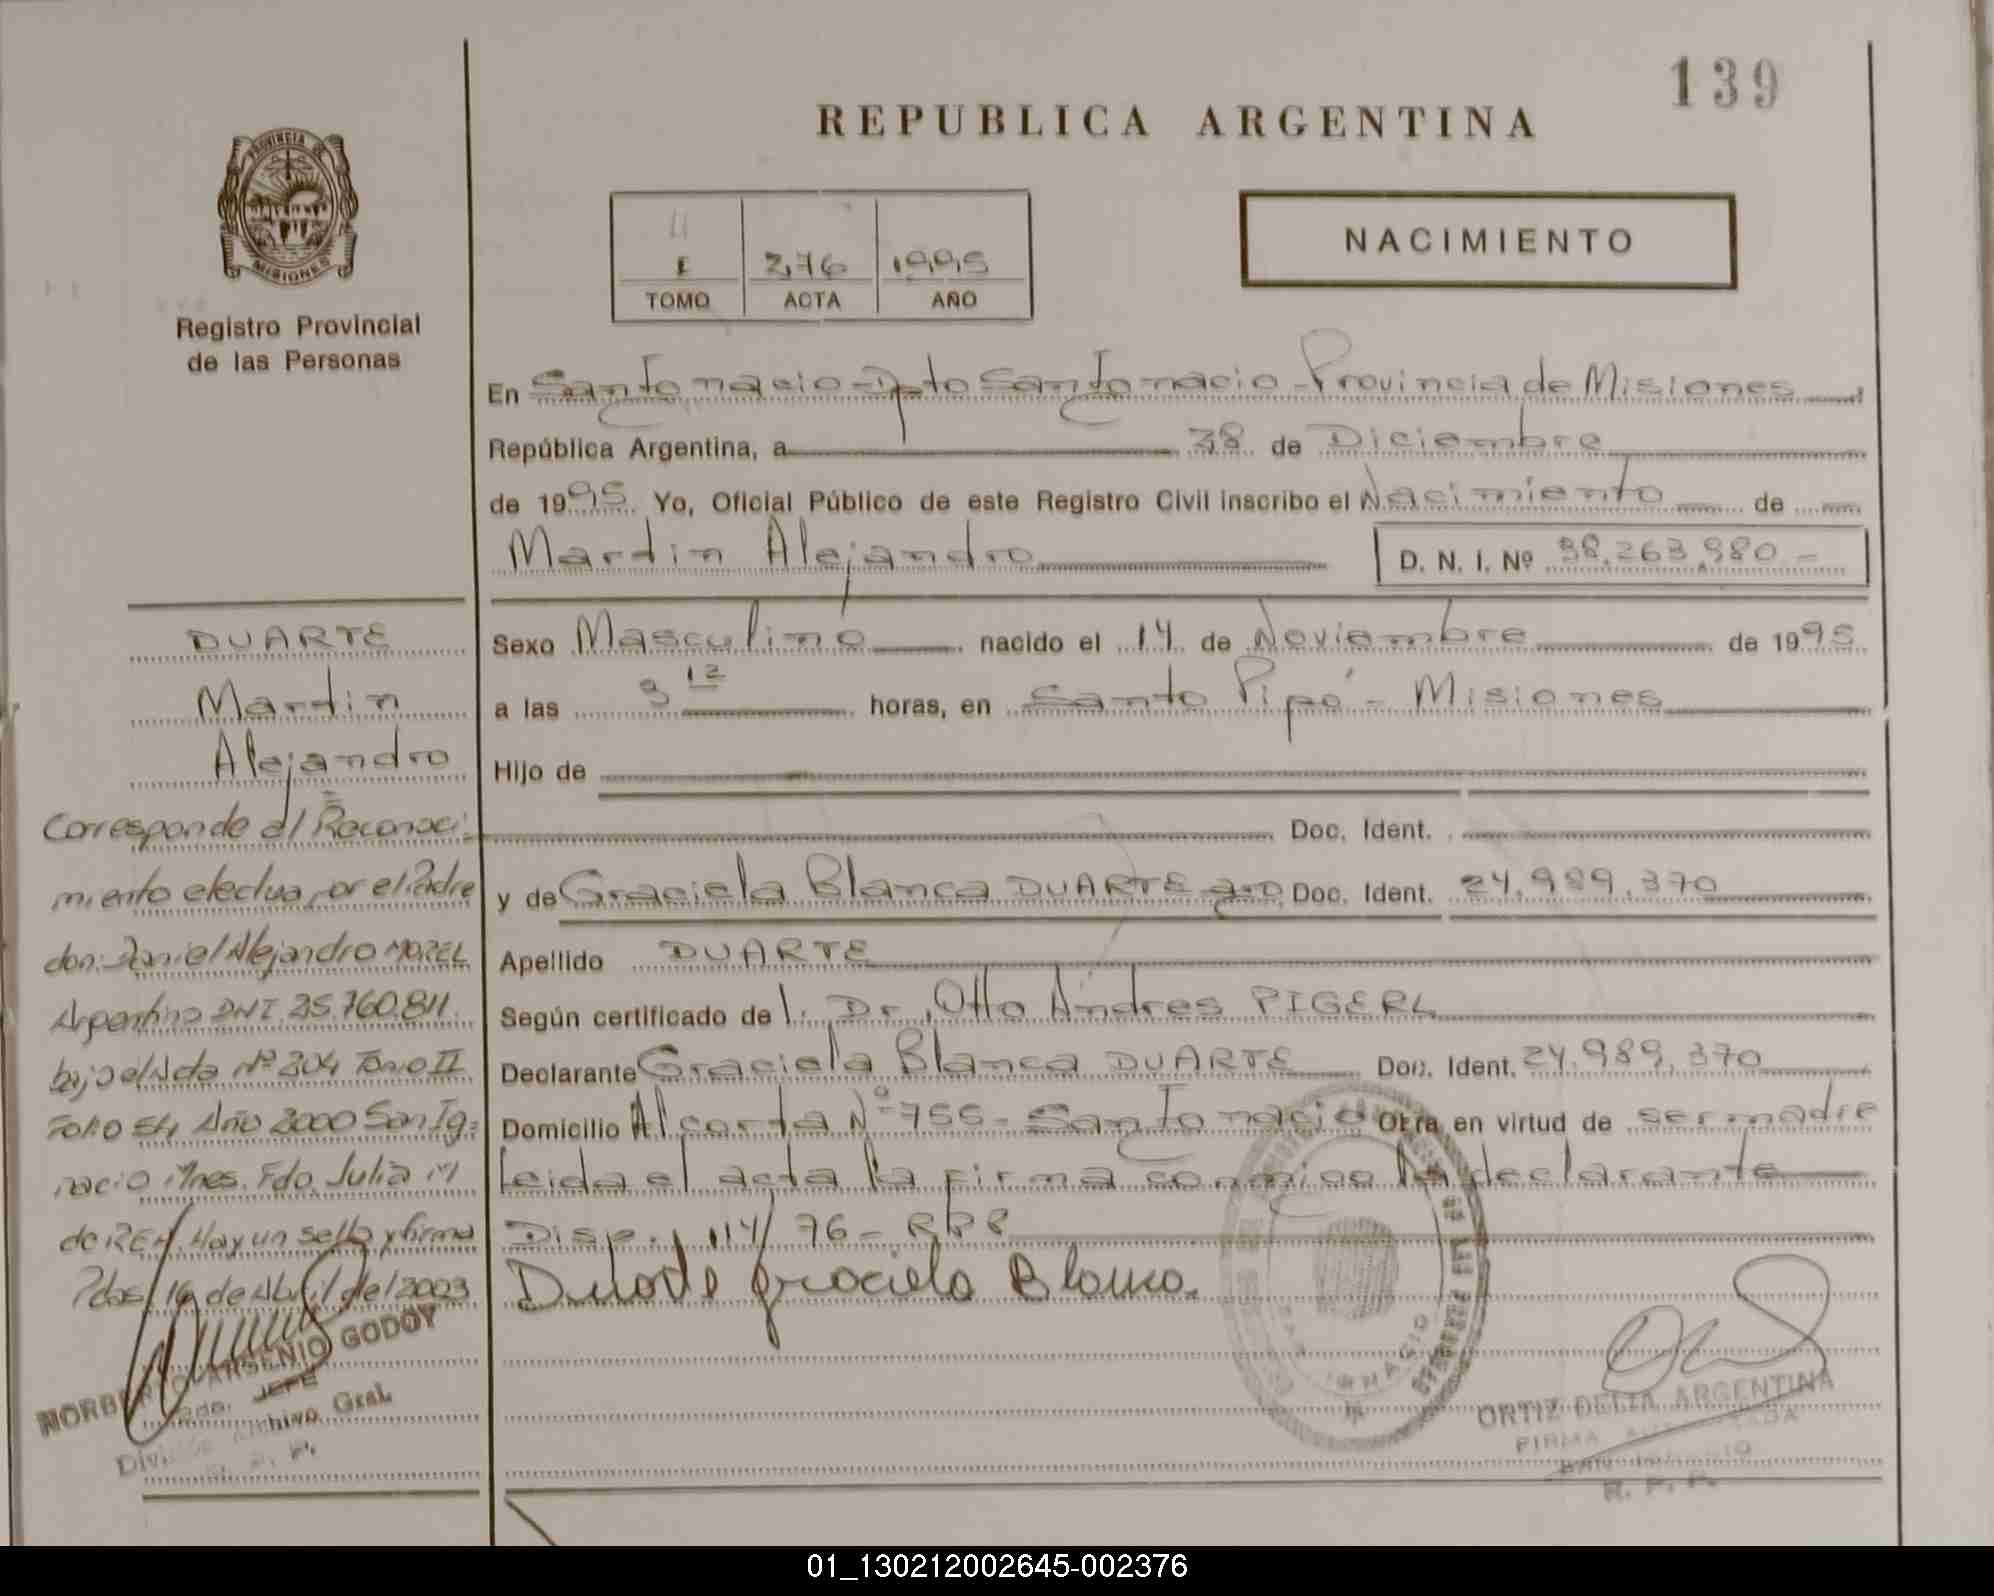 139
REPUBLICA ARGENTINA
PROVINCIA DE
MISIONES
Registro Provincial
de las Personas
II
I 276 1995
TOMO ACTA AÑO
NACIMIENTO
En San Ignacio - Dpto San Ignacio - Provincia de Misiones
República Argentina, a 28 de Diciembre
de 1995 Yo, Oficial Público de este Registro Civil inscribo el Nacimiento de
Martin Alejandro D. N. I. Nº 38.263.980 -
Sexo Masculino nacido el 14 de Noviembre de 1995
a las 3 12 horas, en Santo Pipó - Misiones
Hijo de
Doc. Ident.
y de Graciela Blanca DUARTE Doc. Ident. 24.989.370
Apellido DUARTE
Según certificado de l. Dr. Otto Andres PIGERL
Declarante Graciela Blanca DUARTE Doc. Ident. 24.989.370
Domicilio Alcorta Nº 755 - San Ignacio Obra en virtud de ser madre
leida el acta la firma conmigo la declarante
Disp. 114/76 - RPP
Duarte graciela Blanca.
DUARTE
Martin
Alejandro
Corresponde al Reconoci-
miento efectua por el Padre
don: Daniel Alejandro MOREL
Argentino DNI 25.760.811
bajo el Acta Nº 204 Tomo II
Folio 54 Año 2000 San Ig-
nacio Mnes. Fdo. Julia M
de REH. Hay un sello y firma
Pdas, 16 de Abril del 2003
NORBERTO ARSENIO GODOY
JEFE
División Archivo Gral.
R. P. P.
DE LAS PERSONAS
SAN IGNACIO
ORTIZ DELIA ARGENTINA
FIRMA AUTORIZADA
SAN IGNACIO
R. P. P.
01_130212002645-002376